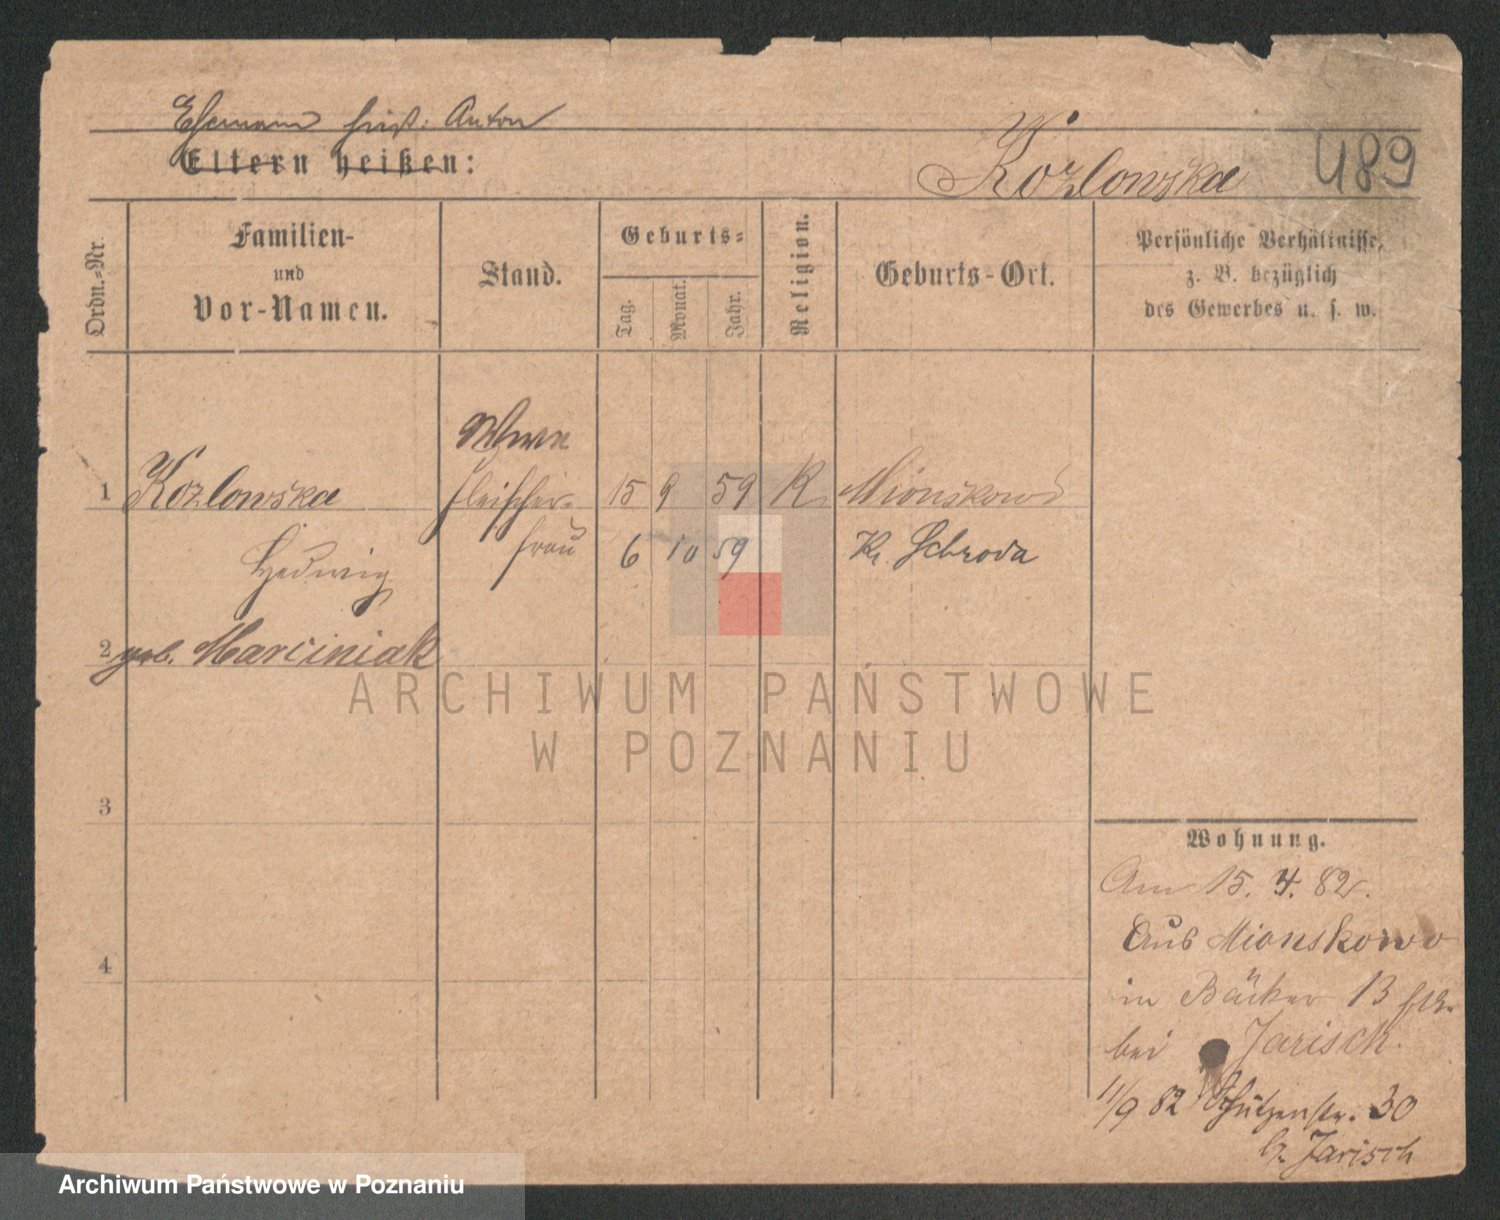 Ehemann heißt: Anton
Eltern heißen:
Kozlowska
489
Ordn.-Nr.
Familien-
und
Vor-Namen.
Stand.
Geburts-
Tag.
Monat.
Jahr.
Religion.
Geburts-Ort.
Persönliche Verhältnisse,
z. B. bezüglich
des Gewerbes u. s. w.
Wwe
1 Kozlowska Fleischer- 15 9 59 K. Mionskowo
Hedwig frau 6 10 59 Kr. Schroda
2 geb. Marciniak
3
4
Wohnung.
Am 15. 4. 82.
Aus Mionskowo
in Bäcker 13
bei Jarisch.
11/9 82 Schützenstr. 30
b. Jarisch
ARCHIWUM PAŃSTWOWE
W POZNANIU
Archiwum Państwowe w Poznaniu